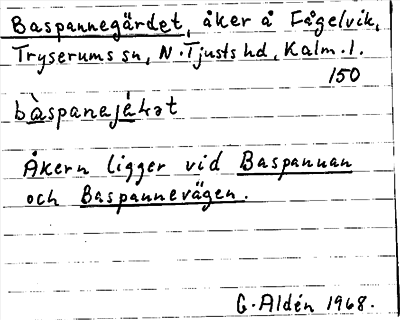 Baspannegärdet, åker å Fågelvik,
Tryserums sn, N. Tjusts hd, Kalm. l.
150
bàspanejé̤ɬət
Åkern ligger vid Baspannan
och Baspannevägen.
G. Aldén 1968.